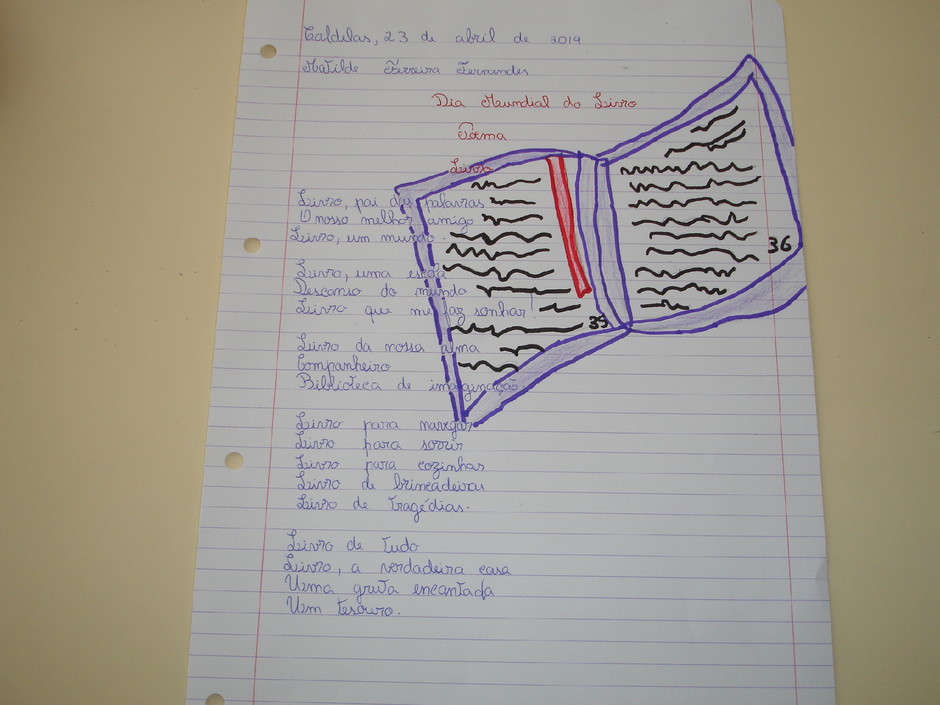 Caldelas, 23 de abril de 2014
Matilde Ferreira Fernandes
Dia Mundial do Livro
Poema
Livro
Livro, pai das palavras
O nosso melhor amigo
Livro, um mundo.
Livro, uma escola
Descanso do mundo
Livro que me faz sonhar!
Livro da nossa alma
Companheiro
Biblioteca de imaginação.
Livro para navegar
Livro para sorrir
Livro para cozinhar
Livro de brincadeiras
Livro de tragédias.
Livro de tudo
Livro, a verdadeira casa
Uma gruta encantada
Um tesouro.
35
36